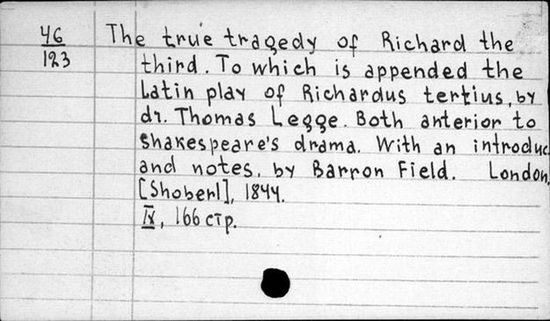 46
123
The true tragedy of Richard the
third. To which is appended the
Latin play of Richardus tertius, by
dr. Thomas Legge. Both anterior to
Shakespeare's drama. With an introduc
and notes, by Barron Field. London,
[Shoberl], 1844.
IX, 166 стр.